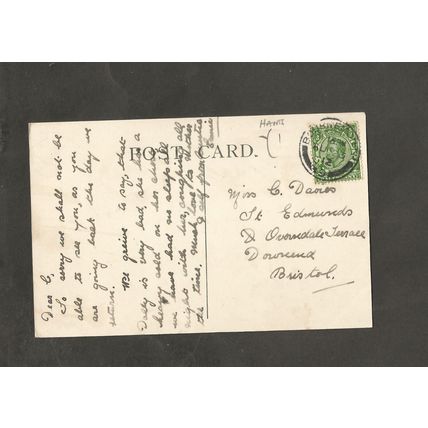 HANTS
POST CARD.
Dear C,
So sorry we shall not be
able to see you, as you
are going back the day we
return.
We grieve to say that
Dolly is very bad, she has a
heavy cold on her chest
we have had no sleep all
night with her, coughing all
the time. Much love to Mother
& self from Auntie
Miss C. Davies
St. Edmunds
& Overndale Terrace
Downend
Bristol.